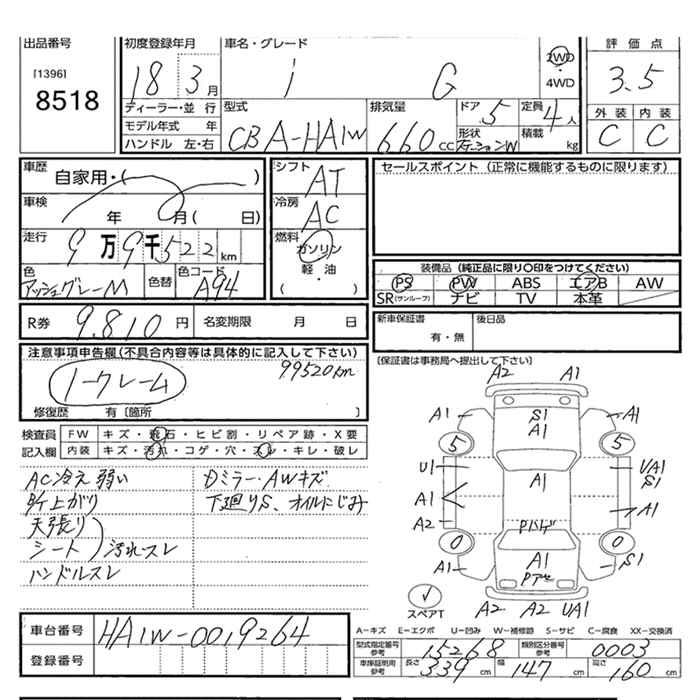 出品番号
[1396]
8518
初度登録年月
18 3 月
ディーラー・並 行
モデル年式 年
ハンドル 左・右
車名・グレード
i G
2WD
・
4WD
型式
CBA-HA1W
排気量
660 cc
ドア 5
形状
ステーションW
定員 4 人
積載 kg
評価点
3.5
外装 内装
C C
車歴
自家用・( )
車検
年 月( 日)
走行
9万9千522 km
色
アッシュグレーM
色替
色コード
A94
シフト
AT
冷房
AC
燃料
ガソリン
軽・油
( ・ )
セールスポイント (正常に機能するものに限ります)
装備品 (純正品に限り○印をつけてください)
PS PW ABS エアB AW
SR(サンルーフ) ナビ TV 本革
R券 9.810 円 名変期限 月 日
新車保証書
有・無
後日品
[保証書は事務局へ提出して下さい]
注意事項申告欄(不具合内容等は具体的に記入して下さい)
99520km
ノークレーム
修復歴 有〔箇所 〕
検査員
記入欄
FW キズ・飛石・ヒビ割・リペア跡・X要
内装 キズ・汚れ・コゲ・穴・スレ・キレ・破レ
AC冷え弱い
Dミラー・AWキズ
下廻りS、オイルにじみ
天張り
シート
汚れスレ
ハンドルスレ
A2 A1
A1 S1 A1
A1
5 5
U1 A1 U/A1
S1
A1 A1
A2 Pハゲ
0 0
A1 A1 S1
Pアセ
スペアT
A2 A2 UA1
車台番号 HA1W-0019264
登録番号
A-キズ E-エクボ U-凹み W-補修跡 S-サビ C-腐食 XX-交換済
型式指定番号
参考
15268
類別区分番号
参考
0003
車庫証明用
参考
長さ 339 cm 幅 147 cm 高さ 160 cm